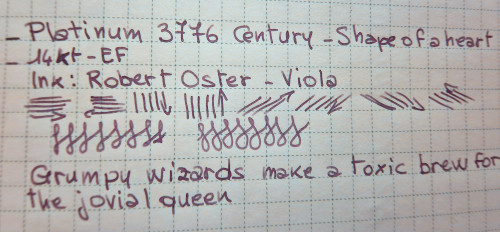 - Platinum 3776 Century - Shape of a heart
- 14kt - EF
Ink: Robert Oster - Viola
Grumpy wizards make a toxic brew for
the jovial queen